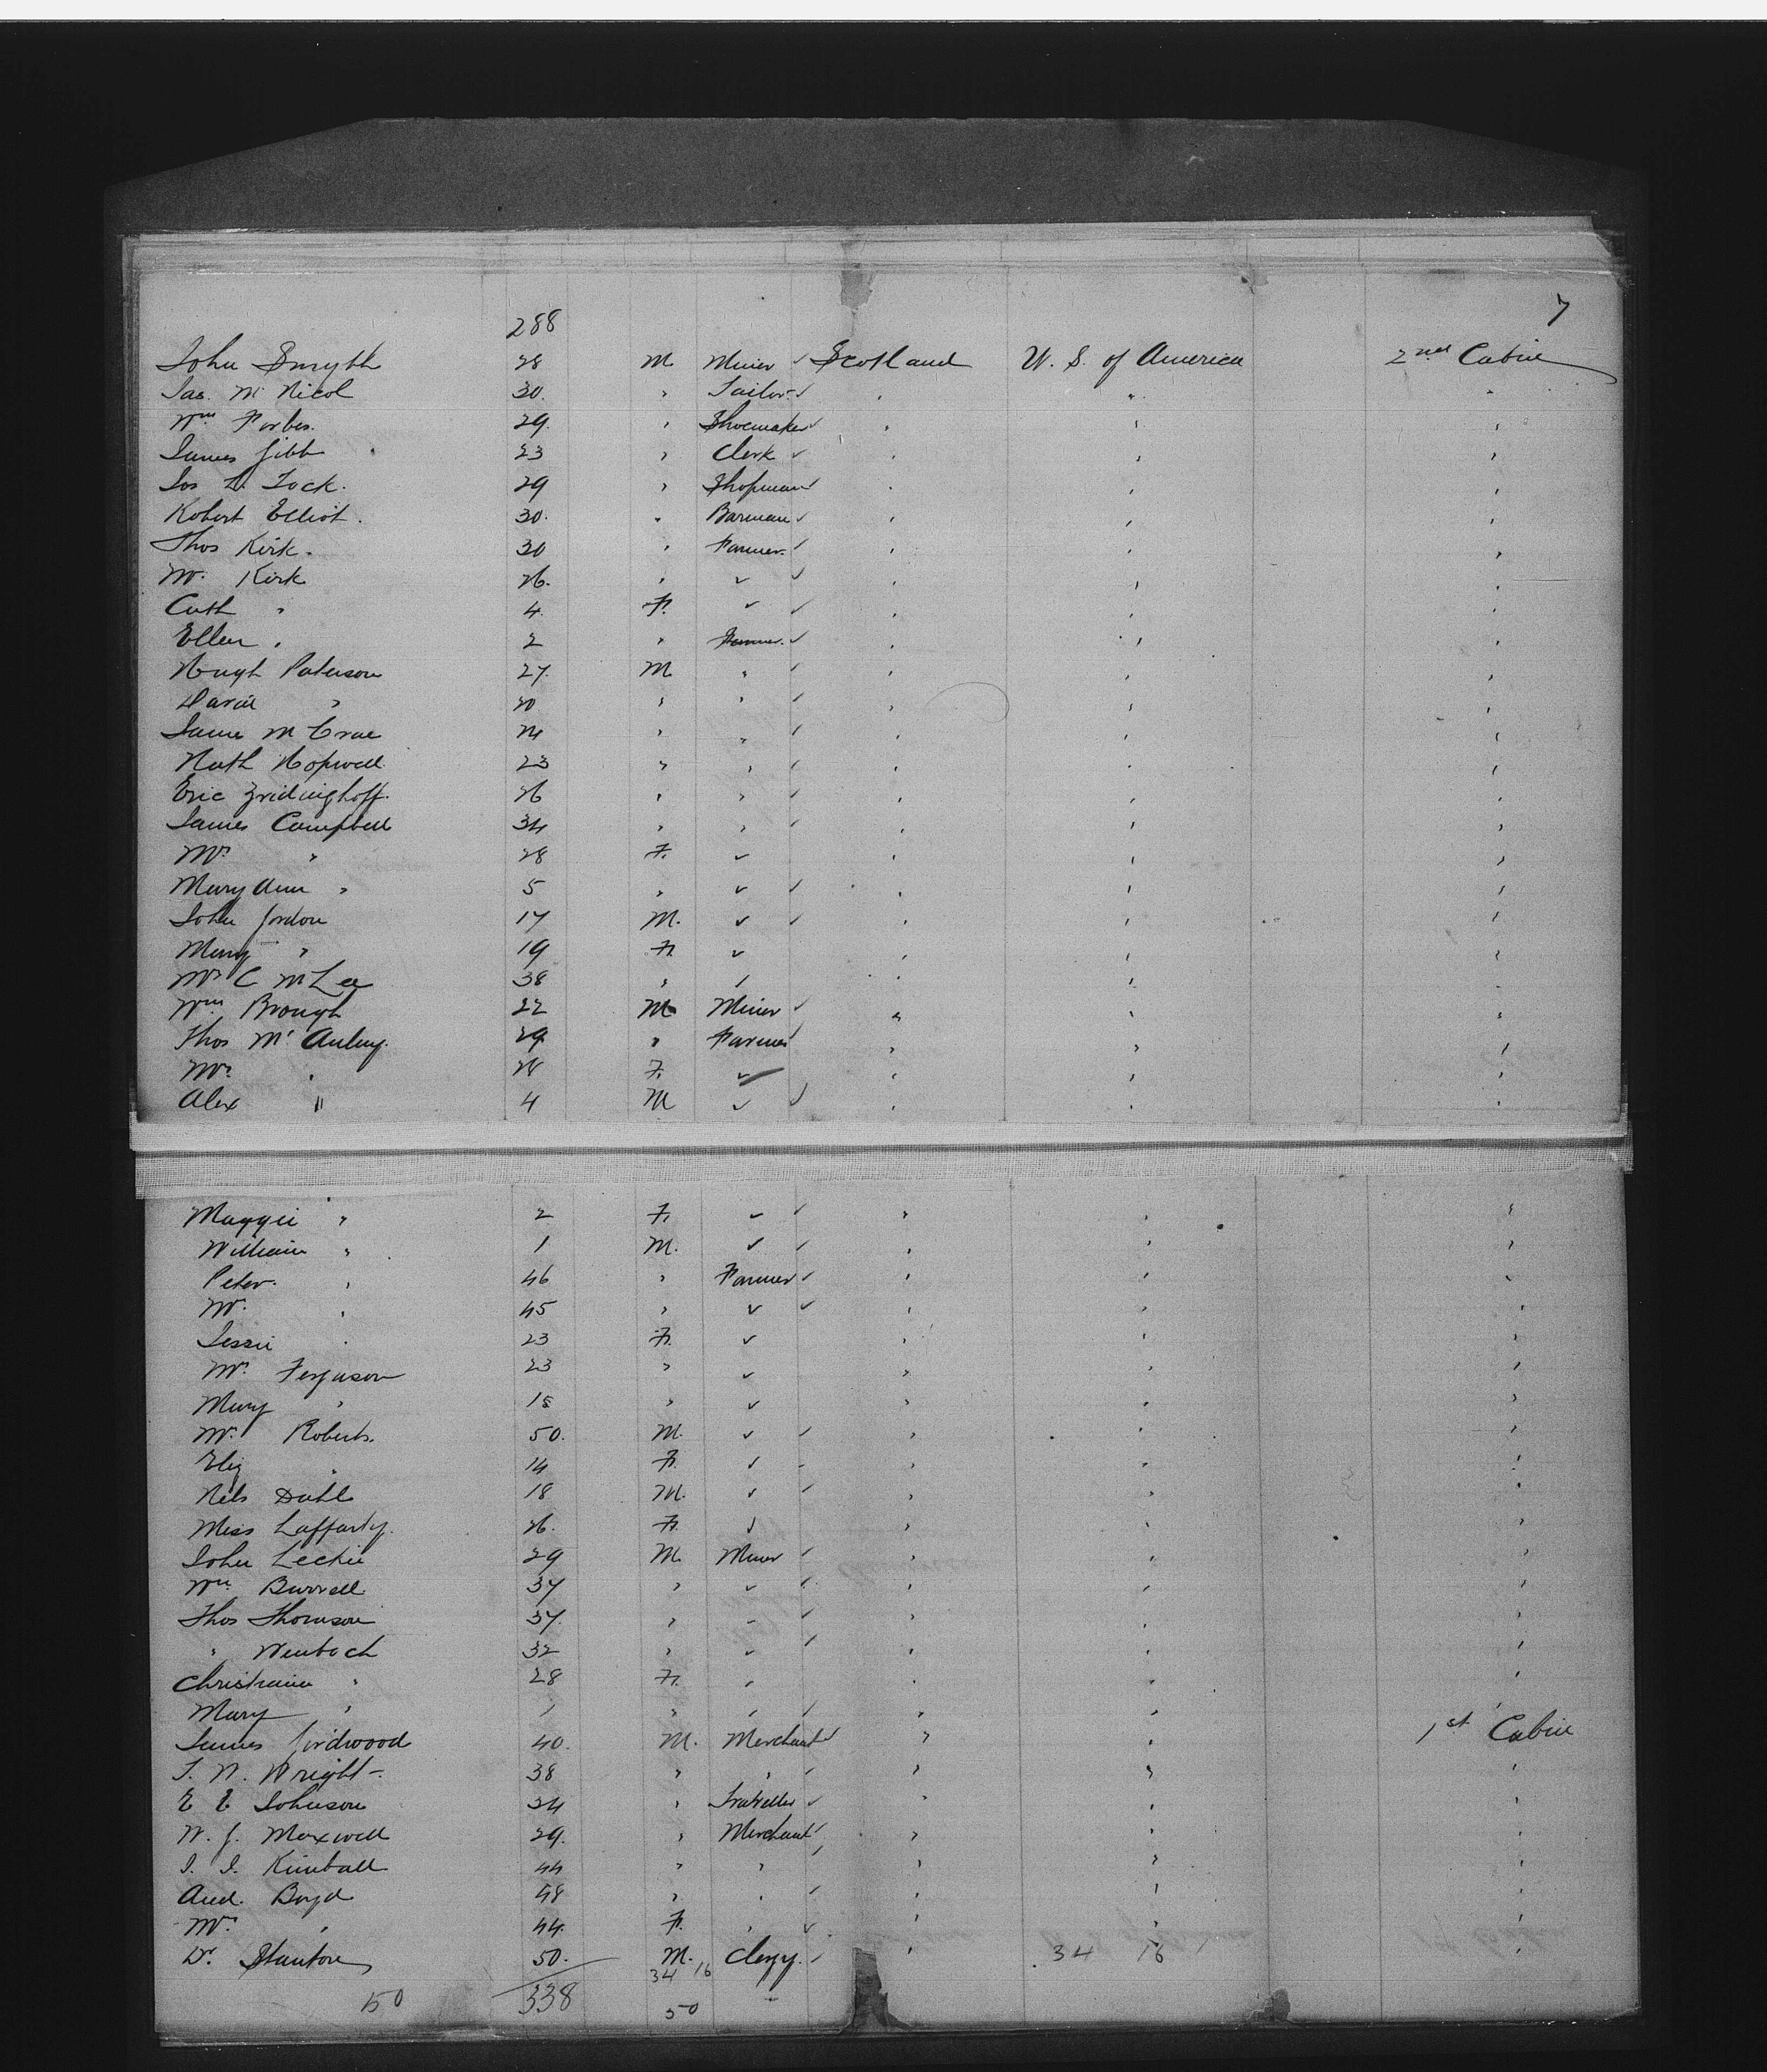 7
288
John Smyth 28 M Miner ✓ Scotland U. S. of America 2nd Cabin
Jas. Mc Nicol 30. " Tailor ✓ " " "
Wm Forbes. 29. " Shoemaker ✓ " " "
James Gibb 23 " Clerk ✓ " " "
Jos L. Tock. 29 " Shopman ✓ " " "
Robert Elliot. 30. " Barman ✓ " " "
Thos Kirk. 30 " Farmer. ✓ " " "
Mr. Kirk 26. " ✓ ✓ " " "
Cath " 4. F. ✓ ✓ " " "
Ellen " 2 " Farmer. ✓ " " "
Hugh Paterson 27. M " ✓ " " "
David " 20 " " ✓ " " "
James Mc Crae 24 " " ✓ " " "
Nath Hopwell 23 " " ✓ " " "
Eric 26 " " ✓ " " "
James Campbell 34 " " ✓ " " "
Mrs " 28 F. ✓ " " "
Mary Ann " 5 " ✓ ✓ " " "
John Gordon 17 M. ✓ ✓ " " "
Mary " 19 F. ✓ " " "
Mrs C Mc Lee 38 " ✓ " " "
Wm Brough 22 M Miner ✓ " " "
Thos Mc Aulay. 29. " Farmer ✓ " " "
Mrs " 28 F. ✓ " " "
Alex " 4 M ✓ ✓ " " "
Maggie " 2 F. ✓ ✓ " " "
William " 1 M. ✓ ✓ " " "
Peter. " 46 " Farmer ✓ " " "
Mr. " 45 " ✓ ✓ " " "
Jessie " 23 F. ✓ " " "
Mrs. Ferguson 23 " ✓ " " "
Mary " 15 " ✓ " " "
Mr. Roberts. 50. M. ✓ ✓ " " "
Eliz " 14 F. ✓ - " " "
Nels Dahl 18 M. ✓ ✓ " " "
Miss Lafferty. 26. F. ✓ " " "
John Leckie 29 M. Miner ✓ " " "
Wm Burrell 37 " ✓ ✓ " " "
Thos Thomson 37. " ✓ ✓ " " "
" 32 " ✓ ✓ " " "
Christiana " 28 F. " " " "
Mary " 1 " " ✓ " " "
James Girdwood 40. M. Merchant ✓ " " 1st Cabin
J. N. Wright. 38 " " ✓ " " "
E E Johnson 34 " Traveller ✓ " " "
W. J. Maxwell 29. " Merchant ✓ " " "
I. I. Kimball 44 " " ✓ " " "
And. Boyd 48 " " ✓ " " "
Mrs. " 44. F. " ✓ " " "
Dr Stanton 50. M. Clergy. ✓ " 34 16 "
34 16
50 338 50